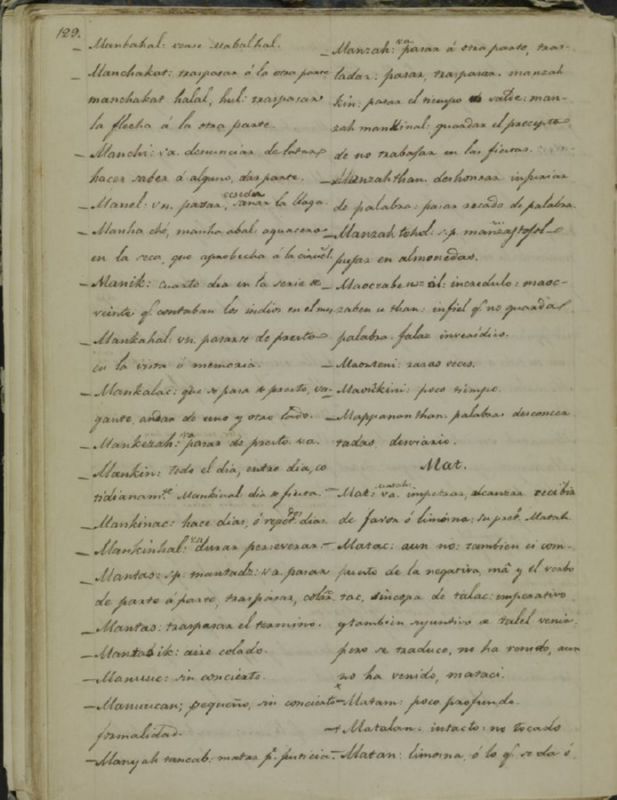 129.
Manbahal: vease
Manchakat: traspasar á la otra parte
manchakat halal, hul: traspasar
la flecha á la otra parte.
Manchi: va. denunciar
hacer saber á alguno, dar parte.
Manel: vn. pasar, sanar la llaga.
Manhaché, manha abal: aguacero
en la seca, que aprobecha á la
Manik: cuarto dia en la serie de
veinte q.^e contaban los indios en el mes
Mankahal: vn. pasarse de presto
en la vista ó memoria.
Mankalac: que se pasa de presto, va-
gante, andar de uno y otro lado.
Mankezah: va pasar de presto va.
Mankin: todo el dia, entre dia, co
tidianam.^te Mankinal dia de fiesta.
Mankinac: hace dias, ó dias.
Mankinhal: va durar perseverar.
Mantaɔ: s.p. mantadz: va. pasar
de parte á parte, traspasar, colar
Mantaɔ: traspasar el termino.
ik: aire colado.
sin concierto.
pequeño, sin concierto
formalidad.
Manyah tancab: matar p.^r justicia.
Manzah: va pasar á otra parte, tras-
ladar: pasar, traspasar. manzah
kin: pasar el tiempo de valde: man-
zah mankinal: guardar el precepto
de no trabajar en las fiestas.
Manzahthan. deshonrar injuriar
de palabra: pasar recado de palabra.
Manzah tohol: s.p.
pujar en almonedas.
incredulo: maoc-
zaben u than: infiel q.^e no guarda
palabra. falaz inveridico.
raras veces.
poco tiempo.
Mappanan than. palabras desconcer
tadas desvario.
Mat.
Mat: va. impetrar, alcanzar recibir
de favor ó limosna; su pret. Matah.
Matac: aun no: tambien es com-
puesto de la negativa, má y el verbo
tac, sincopa de talac: imperativo
y tambien sujuntivo de talel venir:
pero se traduce, no ha venido, aun
no ha venido, mataci.
Matam: poco profundo.
Matalan: intacto: no tocado
Matan: limosna, ó lo q.^e se da ó